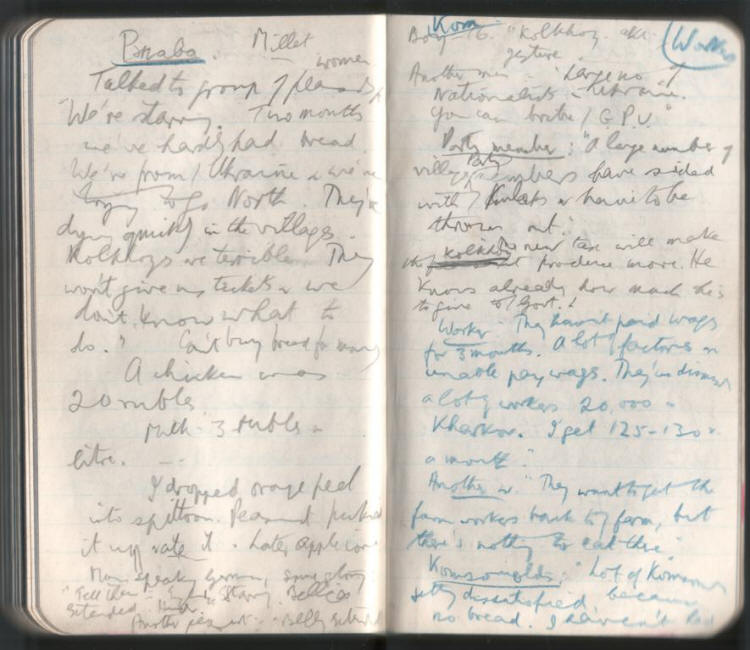 Millet
Talked to group of women peasants
"We're starving. Two months
we've hardly had bread.
We're from Ukraine & we're
trying to go North. They're
dying quickly in the villages.
Kolkhozs are terrible. They
won't give us tickets & we
don't know what to
do." Can't buy bread for money
A chicken was
20 roubles
Milk 3 roubles a
litre.
I dropped orange peel
into spittoon. Peasant picked
it up & ate it. Later apple core
Man speaking German, same story
"Tell them Starving. Bellies
extended. Hunger"
Another peasant
Kom
Boy 16. "Kolkhoz
gesture
Another man "Large no. of
Nationalists in Ukraine.
You can bribe G.P.U."
Party member: "A large number of
village Party members have sided
with Kulaks & have to be
thrown out."
new tax will make
produce more. He
knows already how much he is
to give to Govt."
Worker "They haven't paid wages
for 3 months. A lot of factories
unable pay wages. They've dismissed
a lot of workers 20,000 in
Kharkov. I get 125-130 r.
a month."
Another w. "They want to get the
farm workers back to farm, but
there's nothing to eat there"
"Lot of Komsomols
getting dissatisfied because
no bread. I haven't had